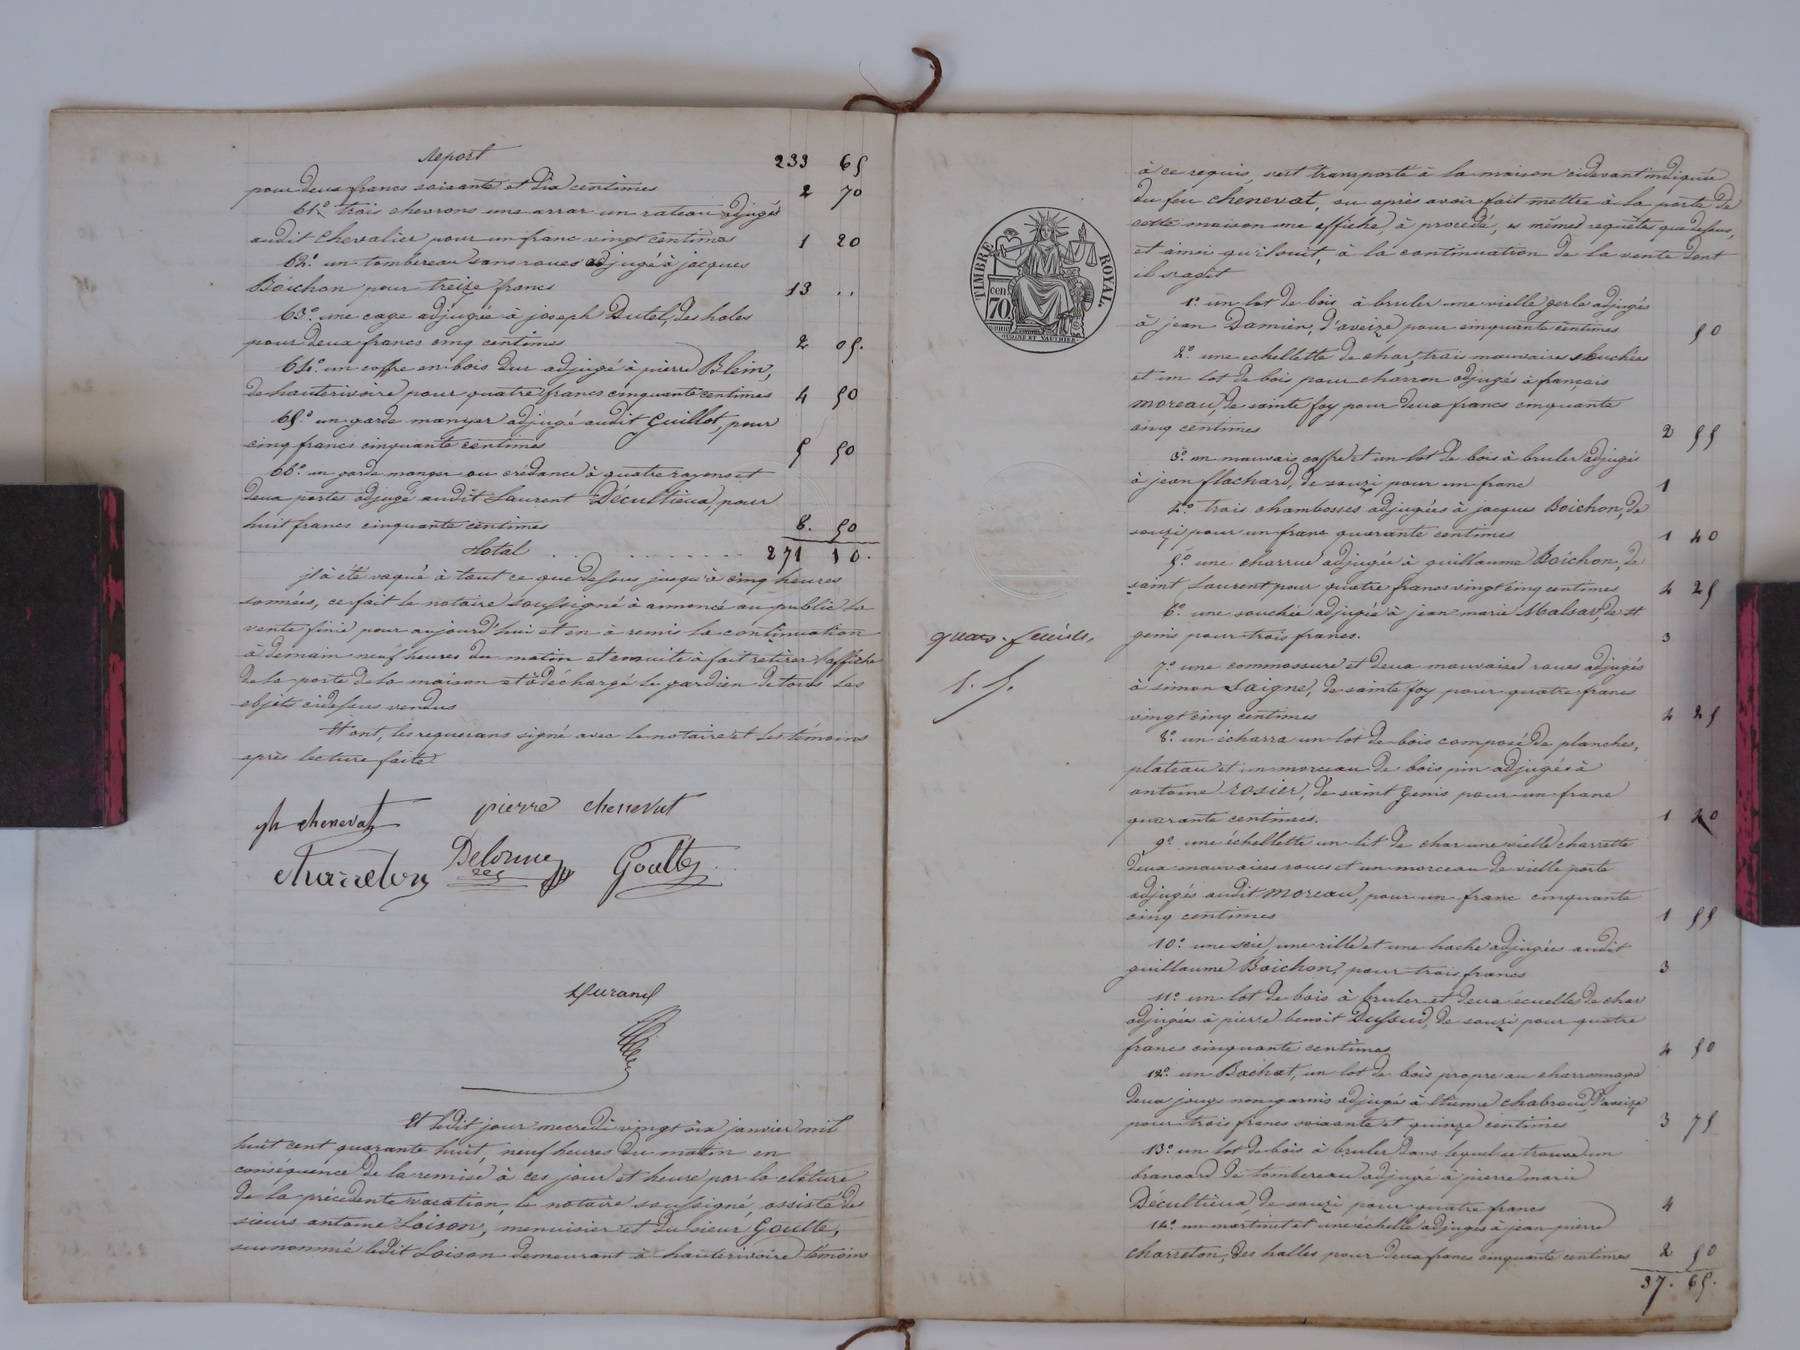 Report 233 65
pour deux francs soixante et dix centimes 2 70
61.º trois chevrons une arrar un rateau adjugés
audit Chevalier pour un franc vingt centimes 1 20
62.º un tombereau sans roues adjugé à jacques
Boichon pour treize francs 13 ..
63.º une cage adjugée à joseph Dutel, des hales
pour deux francs cinq centimes 2 05.
64.º un coffre en bois dur adjugé à pierre Blein,
de hauterivoire pour quatre francs cinquante centimes 4 50
65.º un garde manger adjugé audit Guillot, pour
cinq francs cinquante centimes 5 50
66.º un garde manger ou crédance à quatre rayons et
deux portes adjugé audit Laurent Décultieux, pour
huit francs cinquante centimes 8. 50
Total . . . . . . . . 271 10.
il à été vaqué à tout ce que dessus jusqu'à cinq heures
sonnées, ce fait le notaire soussigné à annoncé au public la
vente finie pour aujourd'hui et en à remis la continuation
à demain neuf heures du matin et ensuite à fait retirer l'affiche
de la porte de la maison et à déchargé le gardien de tous les
objets cidessus vendus
Et ont, les requerans signé avec le notaire et les témoins
après lecture faite
jh chenevat pierre chenevat
charreton Delorme Goutte
Durand
Et ledit jour mecredi vingt six janvier mil
huit cent quarante huit, neuf heures du matin en
conséquence de la remise à ces jour et heure par la clôture
de la précédente vacation, le notaire soussigné, assisté des
sieurs antoine Loison, menuisier et du sieur Goutte,
surnommé ledit Loison demeurant à hauterivoire témoins
à ce requis, s'est transporté à la maison cidevant indiquée
du feu chenevat, ou après avoir fait mettre à la porte de
cette maison une affiche, à procédé, es mêmes requêtes que dessus,
et ainsi qu'il suit, à la continuation de la vente dont
il s'agit
TIMBRE ROYAL.
cen.
70
1.º un lot de bois à bruler une vielle gerle adjugés
à jean Damien, d'aveize pour cinquante centimes 50
2.º une echellette de char, trois mauvaises souchées
et un lot de bois pour charron adjugés à français
moreau, de sainte foy pour deux francs cinquante
cinq centimes 2 55
3.º un mauvais coffre et un lot de bois à bruler adjugés
à jean flachard, de souzi pour un franc 1
4.º trois chambosses adjugées à jacques Boichon, de
souzi pour un franc quarante centimes 1 40
5.º une charrue adjugée à guillaume Boichon, de
saint Laurent pour quatre francs vingt cinq centimes 4 25
6.º une souchée adjugée à jean marie Malsart, de st
genis pour trois francs. 3
7.º une commossure et deux mauvaises roues adjugés
à simon Saigne, de sainte foy pour quatre francs
vingt cinq centimes 4 25
8.º un écharra un lot de bois composé de planches,
plateau et un morceau de bois pin adjugés à
antoine rosier, de saint genis pour un franc
quarante centimes. 1 40
9.º une échellette un lit de char une vielle charrette
deux mauvaises roues et un morceau de vielle porte
adjugés audit moreau, pour un franc cinquante
cinq centimes 1 55
10.º une scie, une rille et une hache adjugées audit
guillaume Boichon, pour trois francs 3
11.º un lot de bois à bruler et deux écuelles de char
adjugées à pierre benoit Dussud, de souzi pour quatre
francs cinquante centimes 4 50
12.º un Bachat, un lot de bois propre au charronnage
deux jougs non garnis adjugé à Etienne chabraud d'aveize
pour trois francs soixante et quinze centimes 3 75
13.º un lot de bois à bruler dans lequel se trouve un
brancard de tombereau adjugé à pierre marie
Décultieux, de souzi pour quatre francs 4
14.º un martinet et une échelle adjugés à jean pierre
charreton, des halles pour deux francs cinquante centimes 2 50
37. 65.